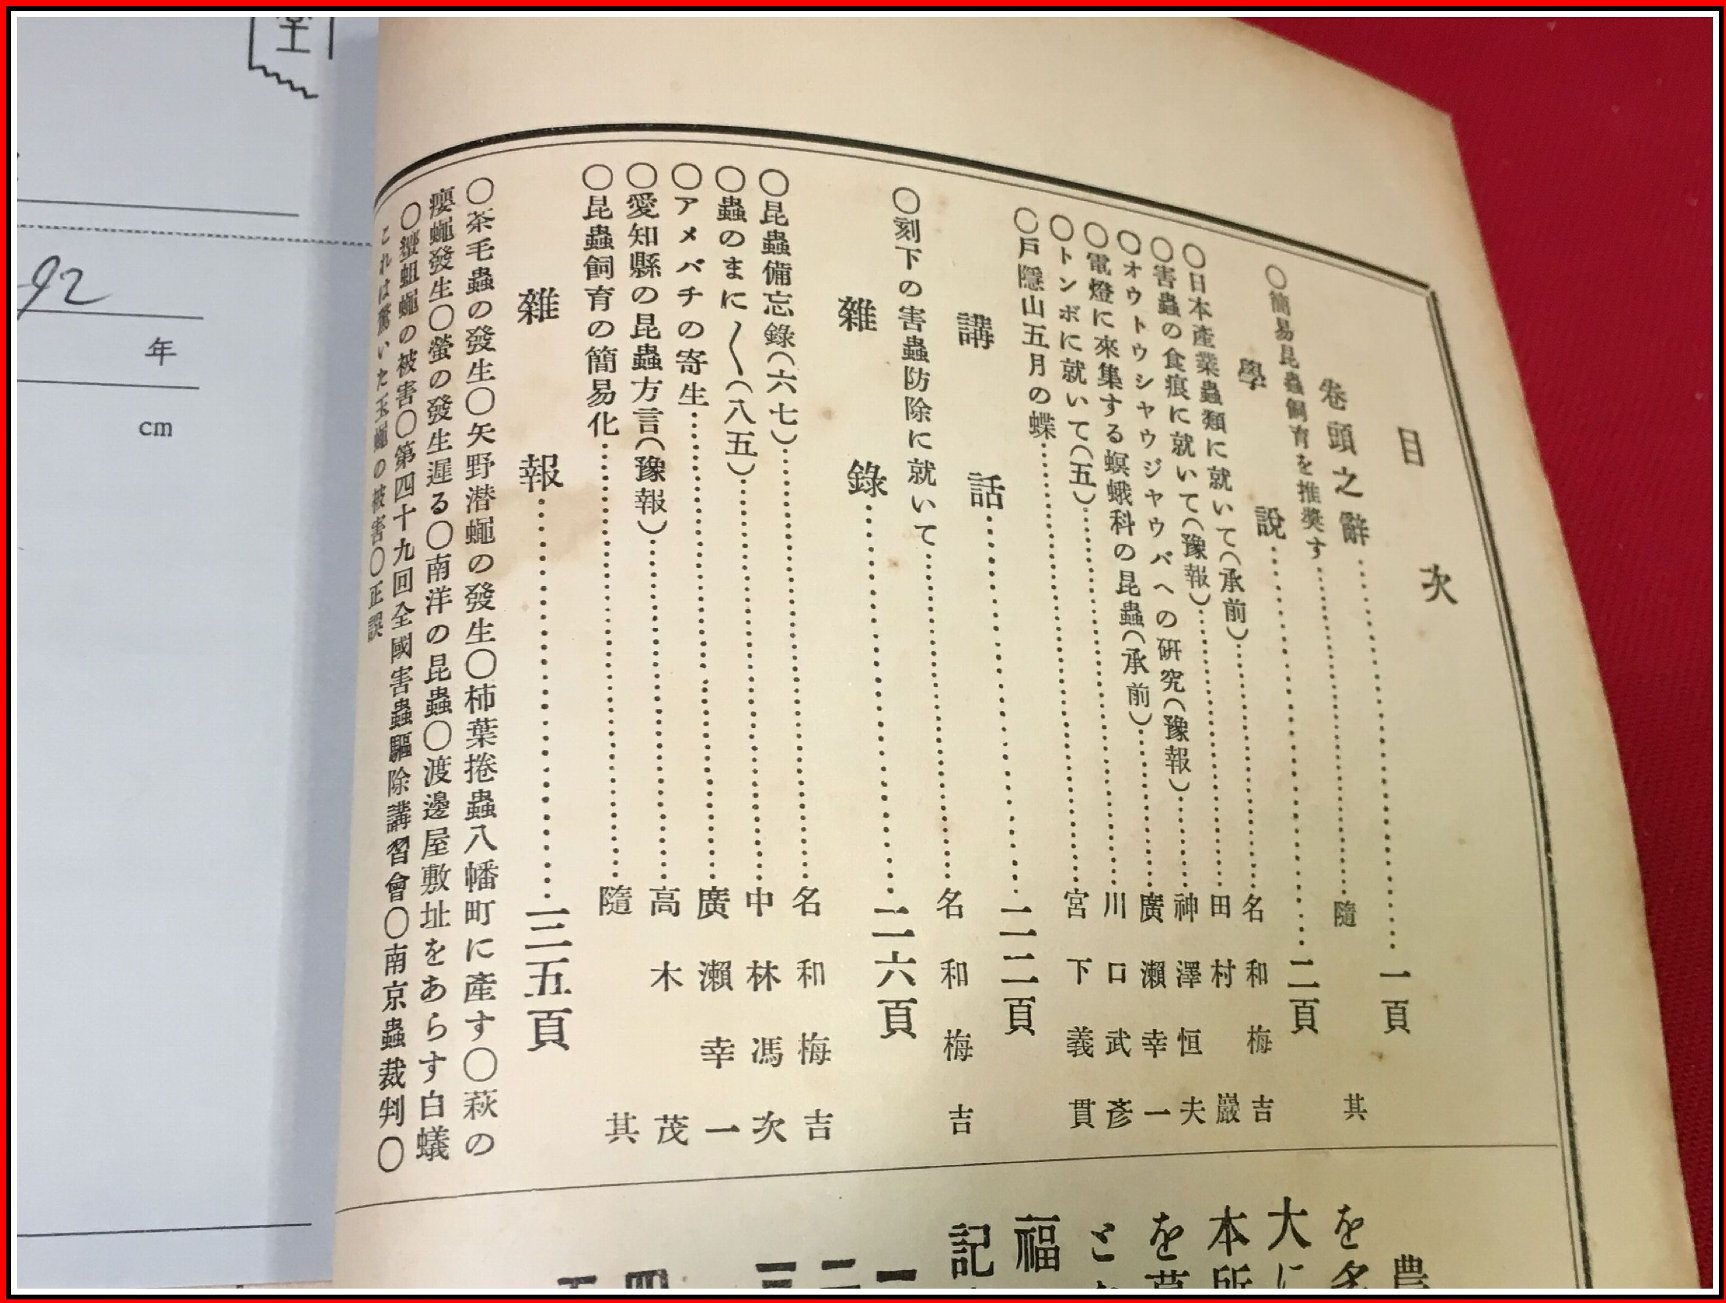 目次
卷頭之辭……一頁
○簡易昆蟲飼育を推奬す……隨其
學說……二頁
○日本產業蟲類に就いて(承前)……名和梅吉
○害蟲の食痕に就いて(豫報)……田村巖
○オウトウシヤウジヤウバヘの研究(豫報)……神澤恒夫
○電燈に來集する螟蛾科の昆蟲(承前)……廣瀨幸一
○トンボに就いて(五)……川口武彥
○戶隱山五月の蝶……宮下義貫
講話……二二頁
○刻下の害蟲防除に就いて……名和梅吉
雜錄……二六頁
○昆蟲備忘錄(六七)……名和梅吉
○蟲のまに〱(八五)……中林馮次
○アメバチの寄生……廣瀨幸一
○愛知縣の昆蟲方言(豫報)……高木茂
○昆蟲飼育の簡易化……隨其
雜報……三五頁
○茶毛蟲の發生○矢野潜蠅の發生○柿葉捲蟲八幡町に產す○萩の
癭蠅發生○螢の發生遲る○南洋の昆蟲○渡邊屋敷址をあらす白蟻
○蠁蛆蠅の被害○第四十九回全國害蟲驅除講習會○南京蟲裁判○
これは驚いた玉蠅の被害○正誤
農
を名
大に
本所
を
と
福
記
一
二
三
四
五
堂
92
年
cm